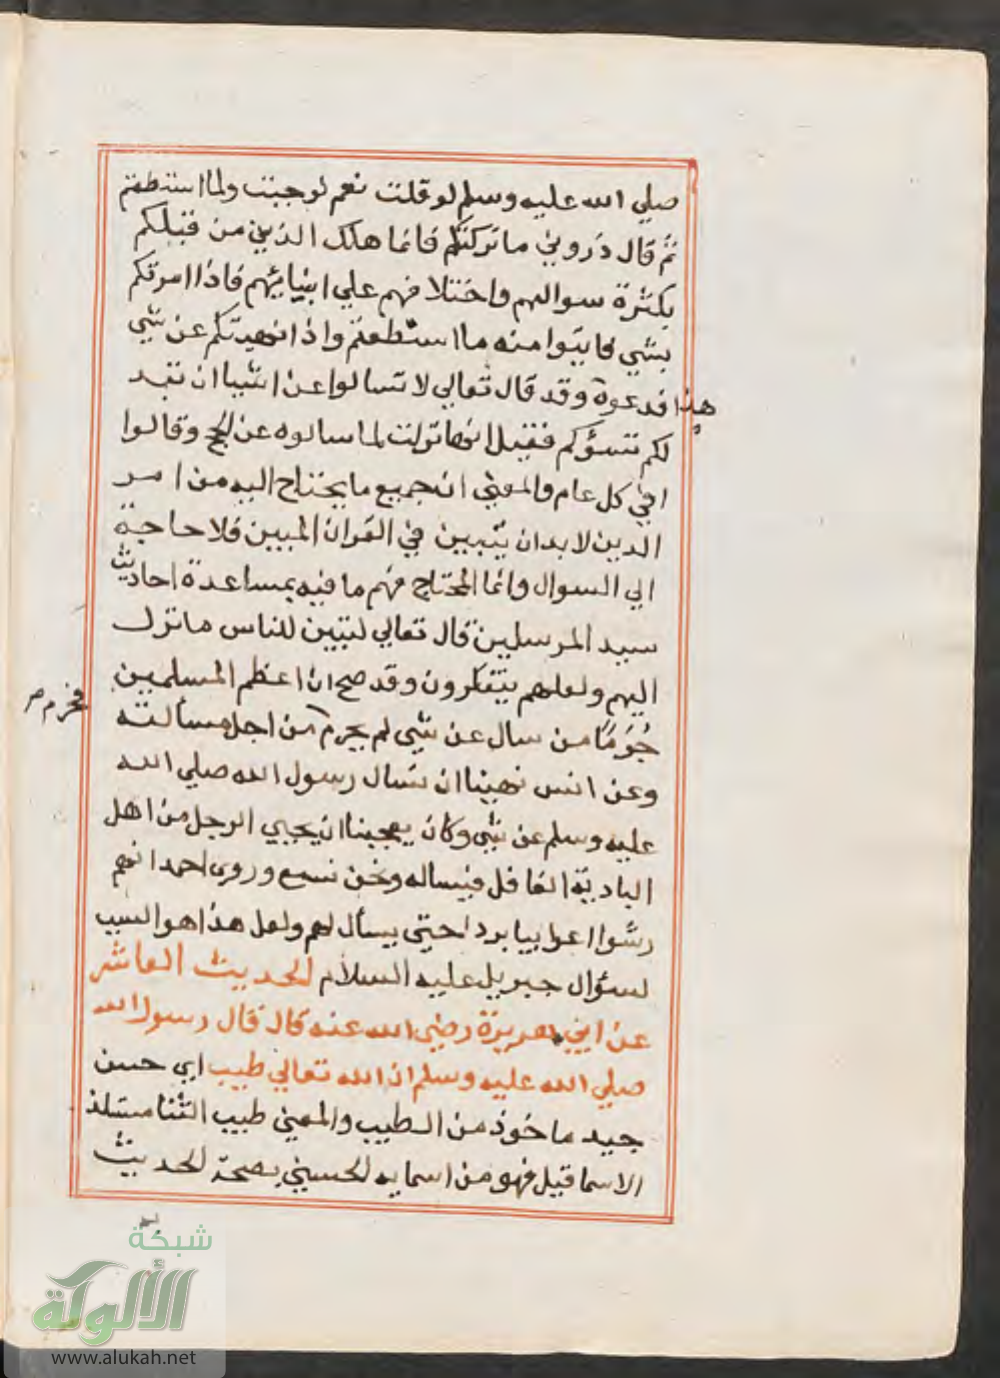 صلي الله عليه وسلم لو قلت نعم لوجبت ولما استطعتم
ثم قال ذروني ما تركتكم فانما هلك الذين من قبلكم
بكثرة سوالهم واختلافهم علي انبيائهم فاذا امرتكم
بشي فايتوا منه ما استطعتم واذا نهيتكم عن شي
هذا فدعوه وقد قال تعالي لا تسالوا عن اشيا ان تبد
لكم تسؤكم فقيل انها نزلت لما سالوه عن الحج وقالوا
افي كل عام والمعني ان جميع ما يحتاج اليه من امر
الدين لا بد ان يتبين في القران المبين فلا حاجة
الي السوال وانما المحتاج فهم ما فيه بمساعدة احاديث
سيد المرسلين قال تعالي لتبين للناس ما نزل
اليهم ولعلهم يتفكرون وقد صح ان اعظم المسلمين
فحرم صح
جُرمًا من سال عن شي لم يحرم من اجل مسألته
وعن انس نهينا ان نسال رسول الله صلي الله
عليه وسلم عن شي وكان يعجبنا ان يجيي الرجل من اهل
البادية الغافل فيساله ونحن نسمع وروى احمد انهم
رشوا اعرابيا بردا حتي يسأل لهم ولعل هذا هو السبب
لسؤال جبريل عليه السلام الحديث العاشر
عن ابي هريرة رضي الله عنه قال قال رسول الله
صلي الله عليه وسلم ان الله تعالي طيب اي حسن
جيد ماخوذ من الطيب والمعني طيب الثنا مستلذ
الاسما قيل فهو من اسمايه الحسني بصحة الحديث
شبكة
الألوكة
www.alukah.net